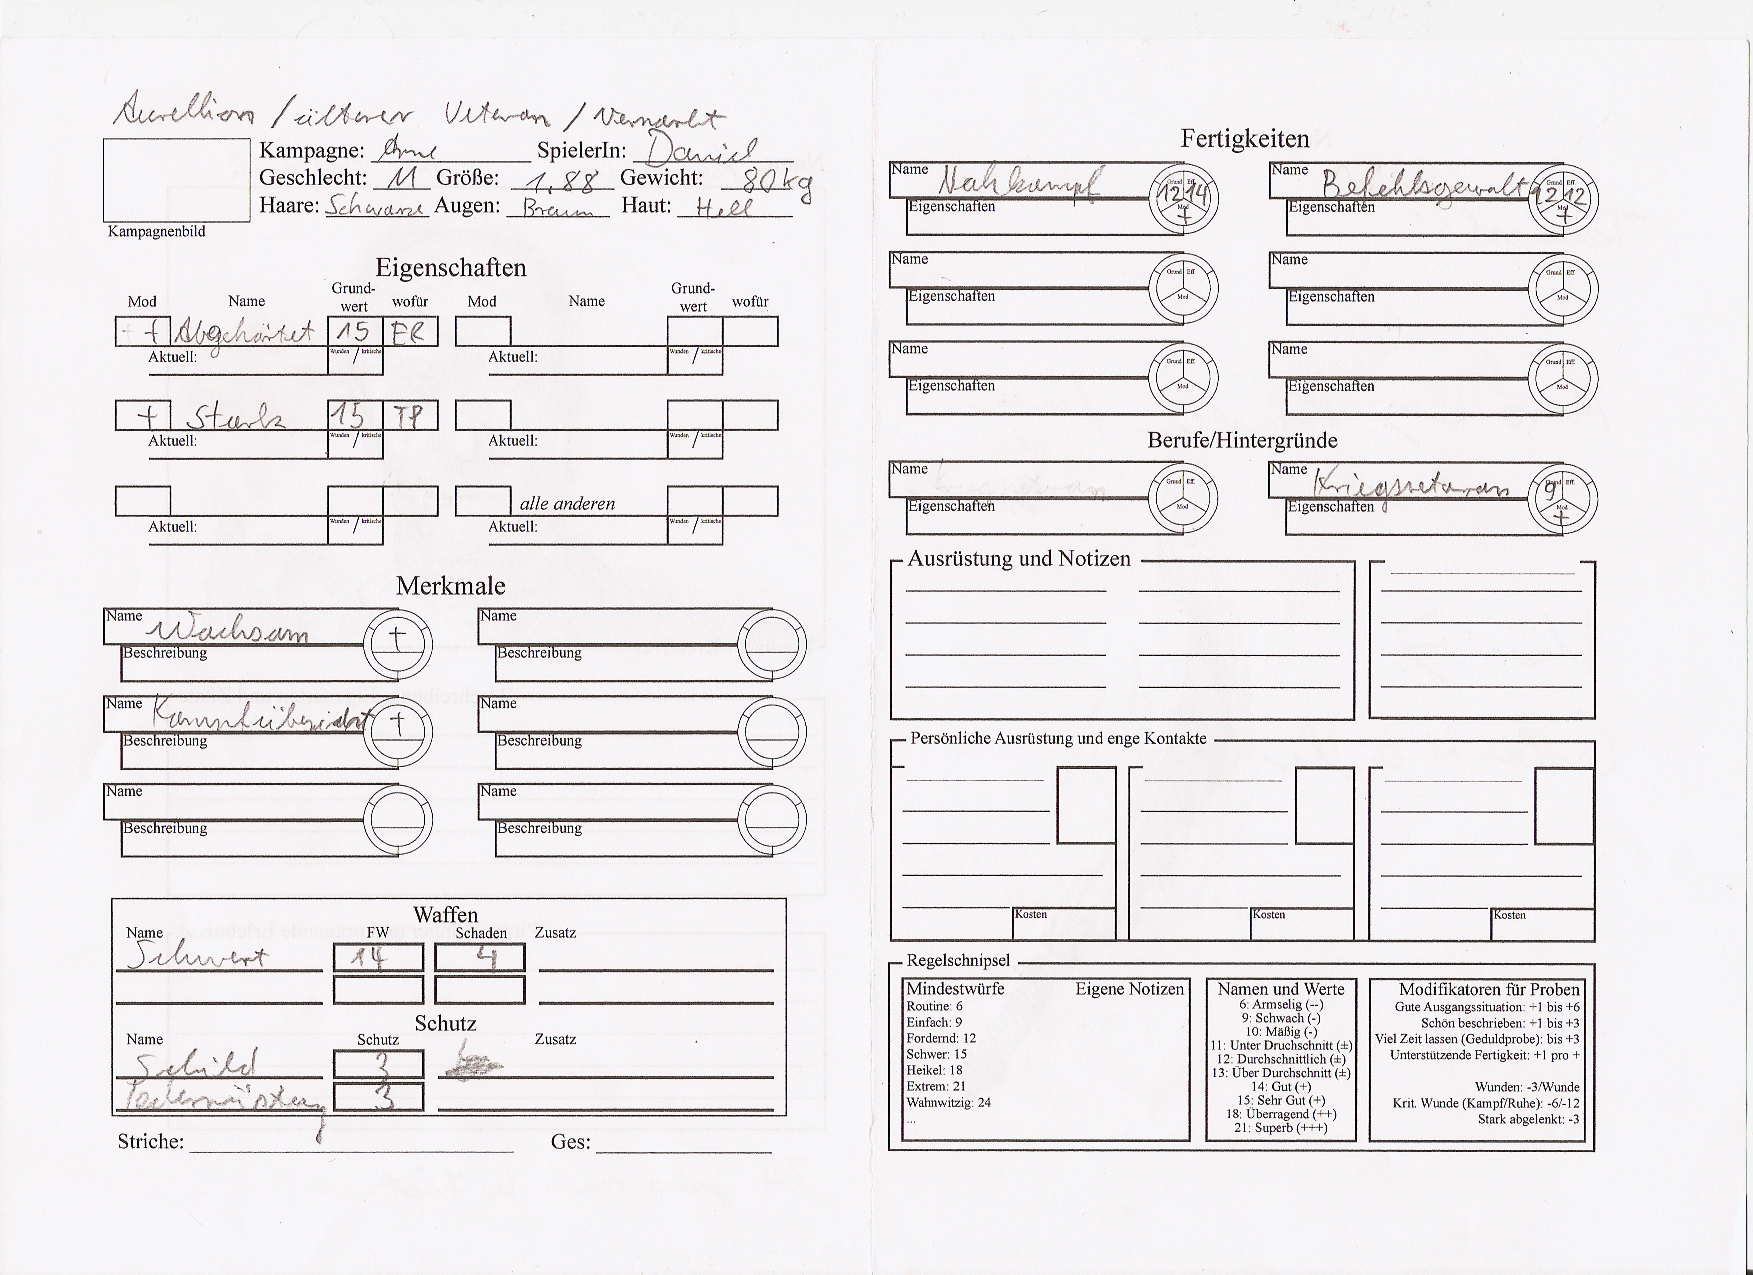 Aurellion / älterer Veteran / Vernarbt
Kampagne: SpielerIn: Daniel
Geschlecht: M Größe: 1,88 Gewicht: 80kg
Haare: Schwarz Augen: Braun Haut: Hell
Kampagnenbild
Eigenschaften
Mod Name Grund-wert wofür Mod Name Grund-wert wofür
+ Abgehärtet 15 ER
Aktuell: Wunden / kritische Aktuell: Wunden / kritische
+ Stark 15 TP
Aktuell: Wunden / kritische Aktuell: Wunden / kritische
alle anderen
Aktuell: Wunden / kritische Aktuell: Wunden / kritische
Merkmale
Name Wachsam + Name
Beschreibung Beschreibung
Name Kampfübersicht + Name
Beschreibung Beschreibung
Name Name
Beschreibung Beschreibung
Waffen
Name FW Schaden Zusatz
Schwert 14 4
Schutz
Name Schutz Zusatz
Schild 3
Lederrüstung 3
Striche: Ges:
Fertigkeiten
Name Nahkampf Grund Eff 12 14 Mod + Name Befehlsgewalt 12 12 Mod +
Eigenschaften Eigenschaften
Name Grund Eff Mod Name Grund Eff Mod
Eigenschaften Eigenschaften
Name Grund Eff Mod Name Grund Eff Mod
Eigenschaften Eigenschaften
Berufe/Hintergründe
Name Grund Eff Mod Name Kriegsveteran 9 Grund Eff Mod +
Eigenschaften Eigenschaften
Ausrüstung und Notizen
Persönliche Ausrüstung und enge Kontakte
Kosten Kosten Kosten
Regelschnipsel
Mindestwürfe Eigene Notizen
Routine: 6
Einfach: 9
Fordernd: 12
Schwer: 15
Heikel: 18
Extrem: 21
Wahnwitzig: 24
...
Namen und Werte
6: Armselig (--)
9: Schwach (-)
10: Mäßig (-)
11: Unter Druchschnitt (±)
12: Durchschnittlich (±)
13: Über Durchschnitt (±)
14: Gut (+)
15: Sehr Gut (+)
18: Überragend (++)
21: Superb (+++)
Modifikatoren für Proben
Gute Ausgangssituation: +1 bis +6
Schön beschrieben: +1 bis +3
Viel Zeit lassen (Geduldprobe): bis +3
Unterstützende Fertigkeit: +1 pro +
Wunden: -3/Wunde
Krit. Wunde (Kampf/Ruhe): -6/-12
Stark abgelenkt: -3